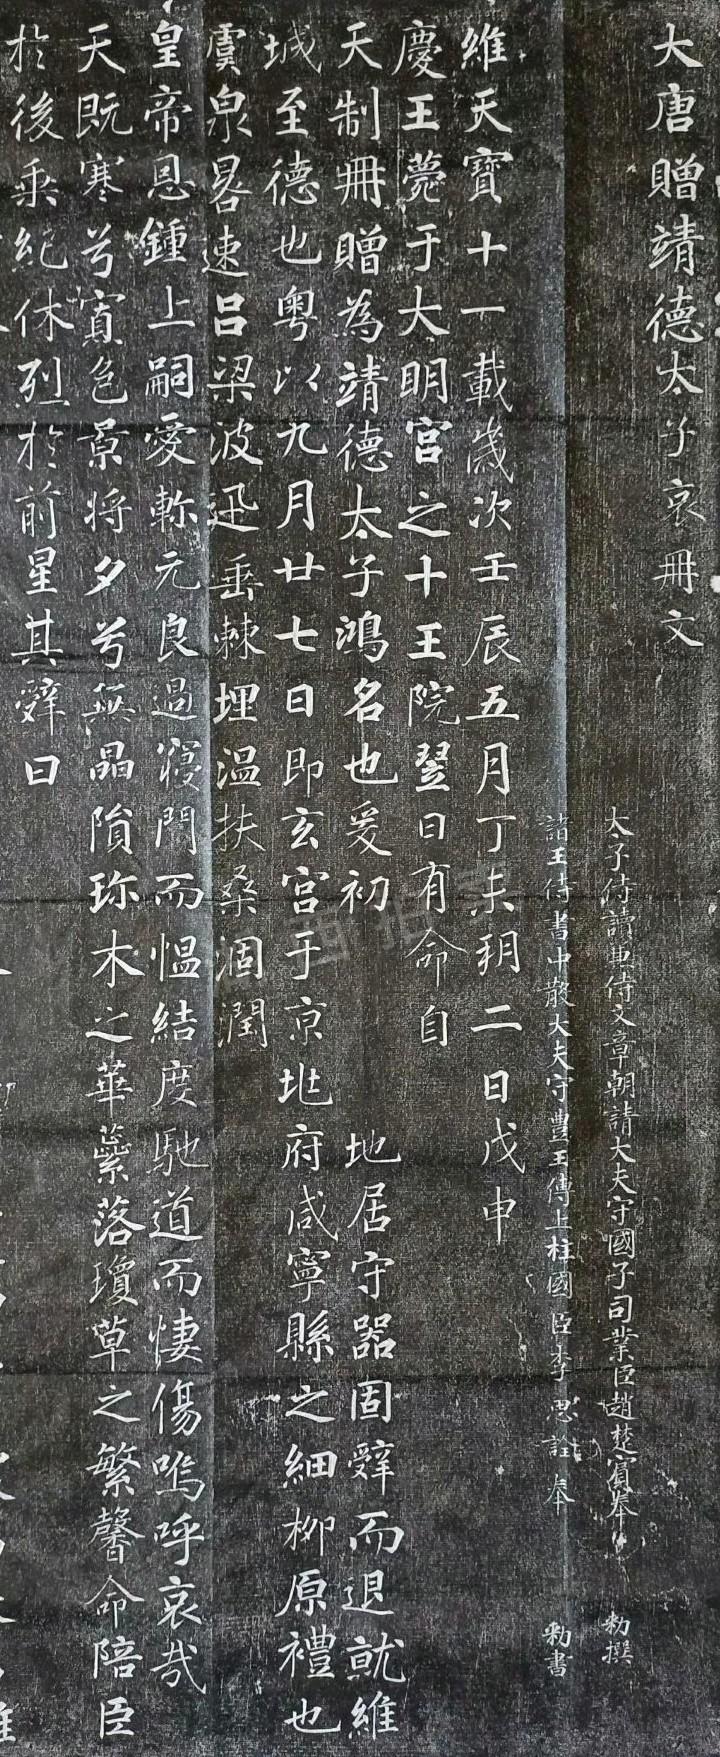 大唐贈靖德太子哀冊文
太子侍讀兼侍文章朝請大夫守國子司業臣趙楚賓奉 勑撰
諸王侍書中散大夫守豐王傅上柱國臣李思詮奉 勑書
維天寶十一載歲次壬辰五月丁未朔二日戊申
慶王薨于大明宮之十王院翌日有命自
天制冊贈為靖德太子鴻名也爰初 地居守器固辭而退就維
城至德也粵以九月廿七日即玄宮于京兆府咸寧縣之細柳原禮也
虞泉晷速呂梁波迅垂棘埋溫扶桑涸潤
皇帝恩鍾上嗣愛軫元良過寢門而慍結度馳道而悽傷嗚呼哀哉
天既寒兮寡色景將夕兮無晶隕珎木之華蘂落瓊草之繁馨命陪臣
於後乘紀休烈於前星其辭曰